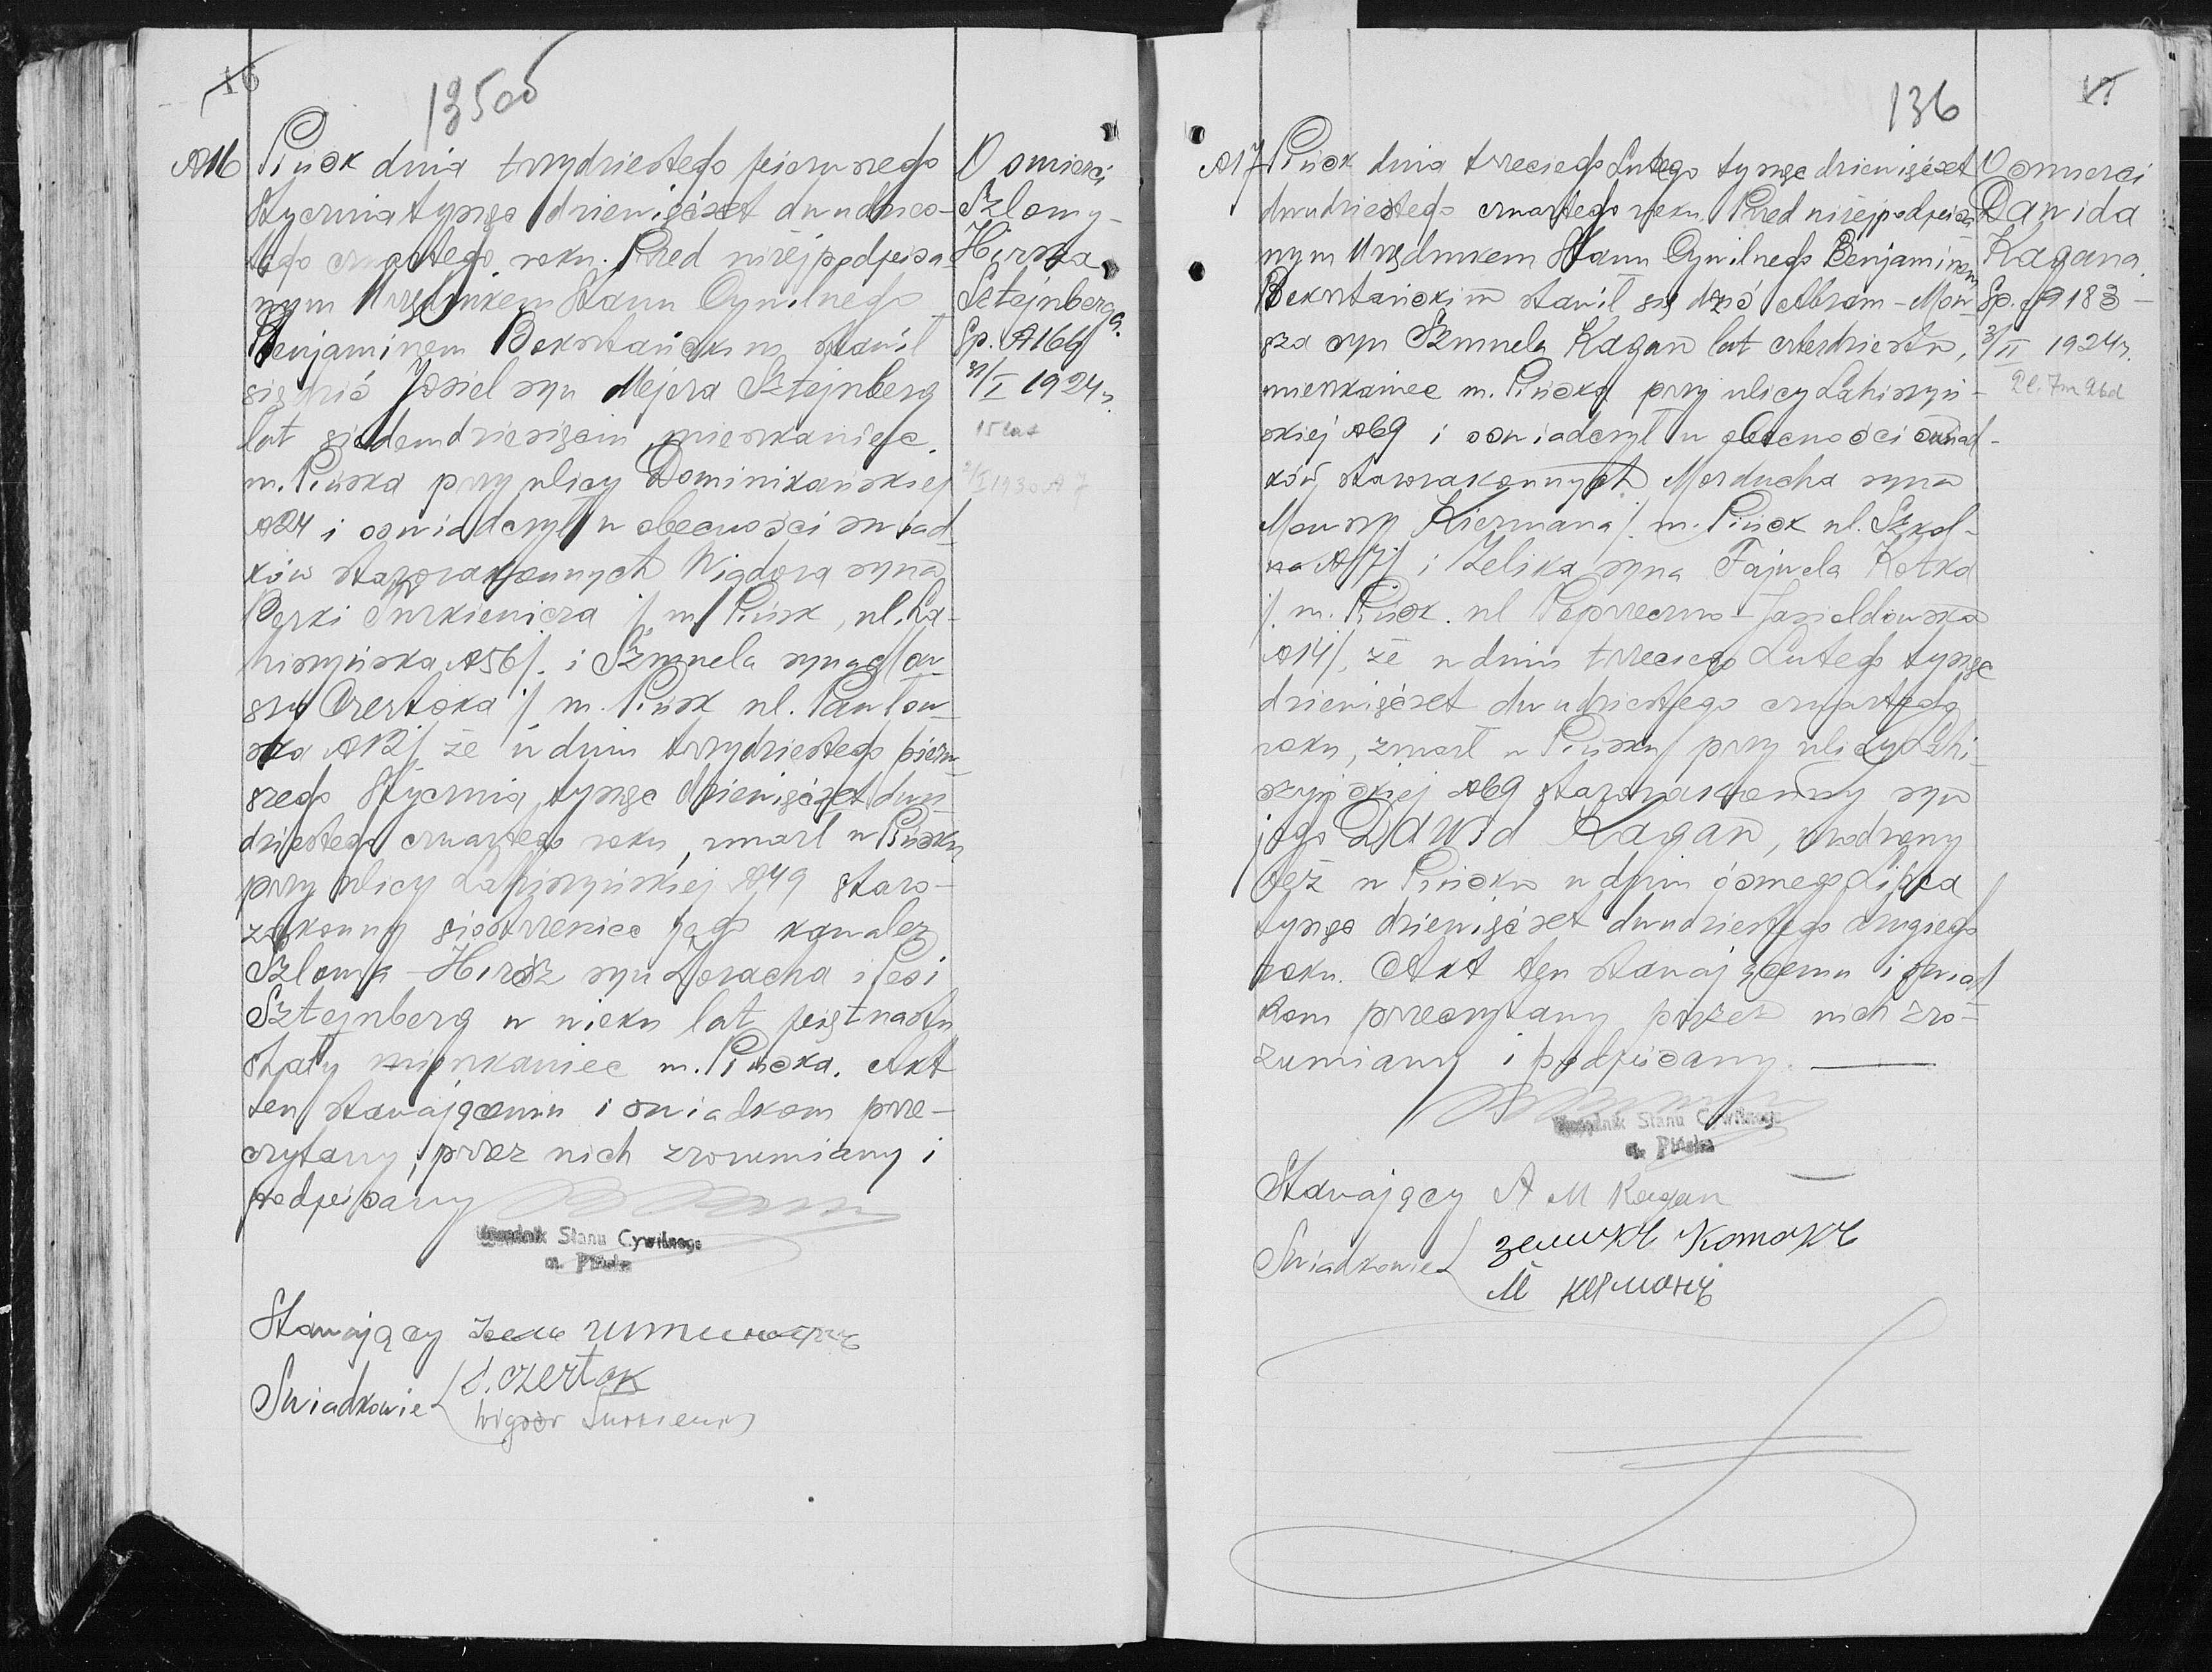 16
135 об
№16 Pińsk dnia trzydziestego pierwszego
Stycznia tysiąc dziewięćset dwudzies-
tego czwartego roku. Przed niżej podpisa-
nym Urzędnikem Stanu Cywilnego
Benjaminem Beksztańskim stawił
się dziś Josiel syn Mejera Sztejnberg
lat siedemdziesięciu mieszkaniec
m. Pińska przy ulicy Dominikańskiej
№24 i oświadczył w obecności świad-
ków starozakonnych Wigdora syna
Berki Turkienicza /. m. Pińsk, ul. Ła-
hiszyńska №56/. i Szmuela syna Mow-
szy Czertoka /. m. Pińsk ul. Pawłow-
ska №12/. że w dniu trzydziestego pierw-
szego Stycznia tysiąc dziewięćset dwu-
dziestego czwartego roku, zmarł w Pińsku
przy ulicy Łahiszyńskiej №49 staro-
zakonny siostrzeniec jego kawaler
Szloma-Hirsz syn Zoracha i Pesi
Sztejnberg w wieku lat piętnastu
stały mieszkaniec m. Pińska. Akt
ten stawającemu i świadkom prze-
czytany, przez nich zrozumiany i
podpisany
Urzędnik Stanu Cywilnego
m. Pińska
Stawający
Świadkowie S. czertok
wigdor
O śmierci
Szlomy-
Hirsza
Sztejnberga.
Sp. №166
31/I 1924 r.
15 lat
136
17
№17 Pińsk dnia trzeciego Lutego tysiąc dziewięćset
dwudziestego czwartego roku. Przed niżej podpisa-
nym Urzędnikem Stanu Cywilnego Benjaminem
Beksztańskim stawił się dziś Abram-Mow-
sza syn Szmuela Kagan lat czterdziestu,
mieszkaniec m. Pińska przy ulicy Łahiszyń-
skiej №69 i oświadczył w obecności świad-
ków starozakonnych Morducha syna
Mowszy Kiermana /. m. Pińsk ul. Szkol-
na №7/. i Zelika syna Fajwela Kotka
/. m. Pińsk. ul Poprzeczno-Jasiełdowska
№14/. że w dniu trzeciego Lutego tysiąc
dziewięćset dwudziestego czwartego
roku, zmarł w Pińsku przy ulicy Łahi-
szyńskiej №69 starozakonny syn
jego Dawid Kagan, urodzony
też w Pińsku w dniu ósmego Lipca
tysiąc dziewięćset dwudziestego drugiego
roku. Akt ten stawającemu i świad-
kom przeczytany przez nich zro-
zumiany i podpisany.
Urzędnik Stanu Cywilnego
m. Pińska
Stawający A M Kagan
Świadkowie зеликъ Котокъ
М керманъ
O śmierci
Dawida
Kagana.
Sp. №183 -
3/II 1924 r.
2 l. 7 m 26 d